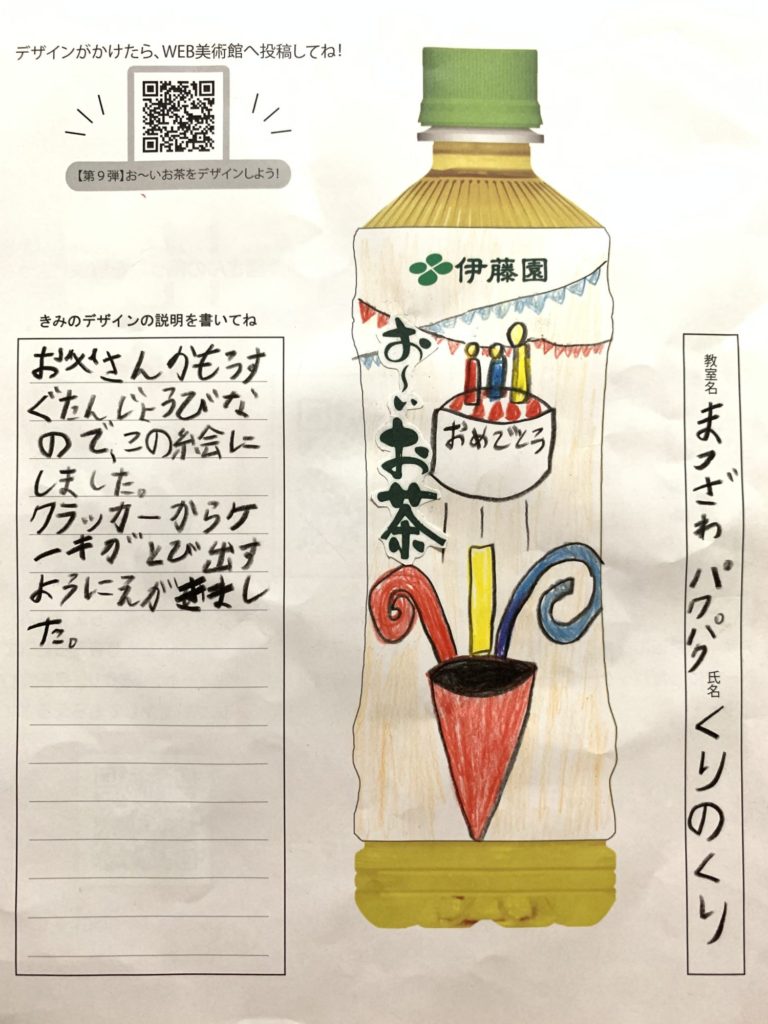 デザインがかけたら、WEB美術館へ投稿してね！
【第９弾】お～いお茶をデザインしよう！
きみのデザインの説明を書いてね
お父さんがもうす
ぐたんじょうびな
ので、この絵に
しました。
クラッカーからケ
ーキがとび出す
ようにえがきまし
た。
伊藤園
お～いお茶
おめでとう
教室名
まつざわ パクパク
氏名
くりのくり